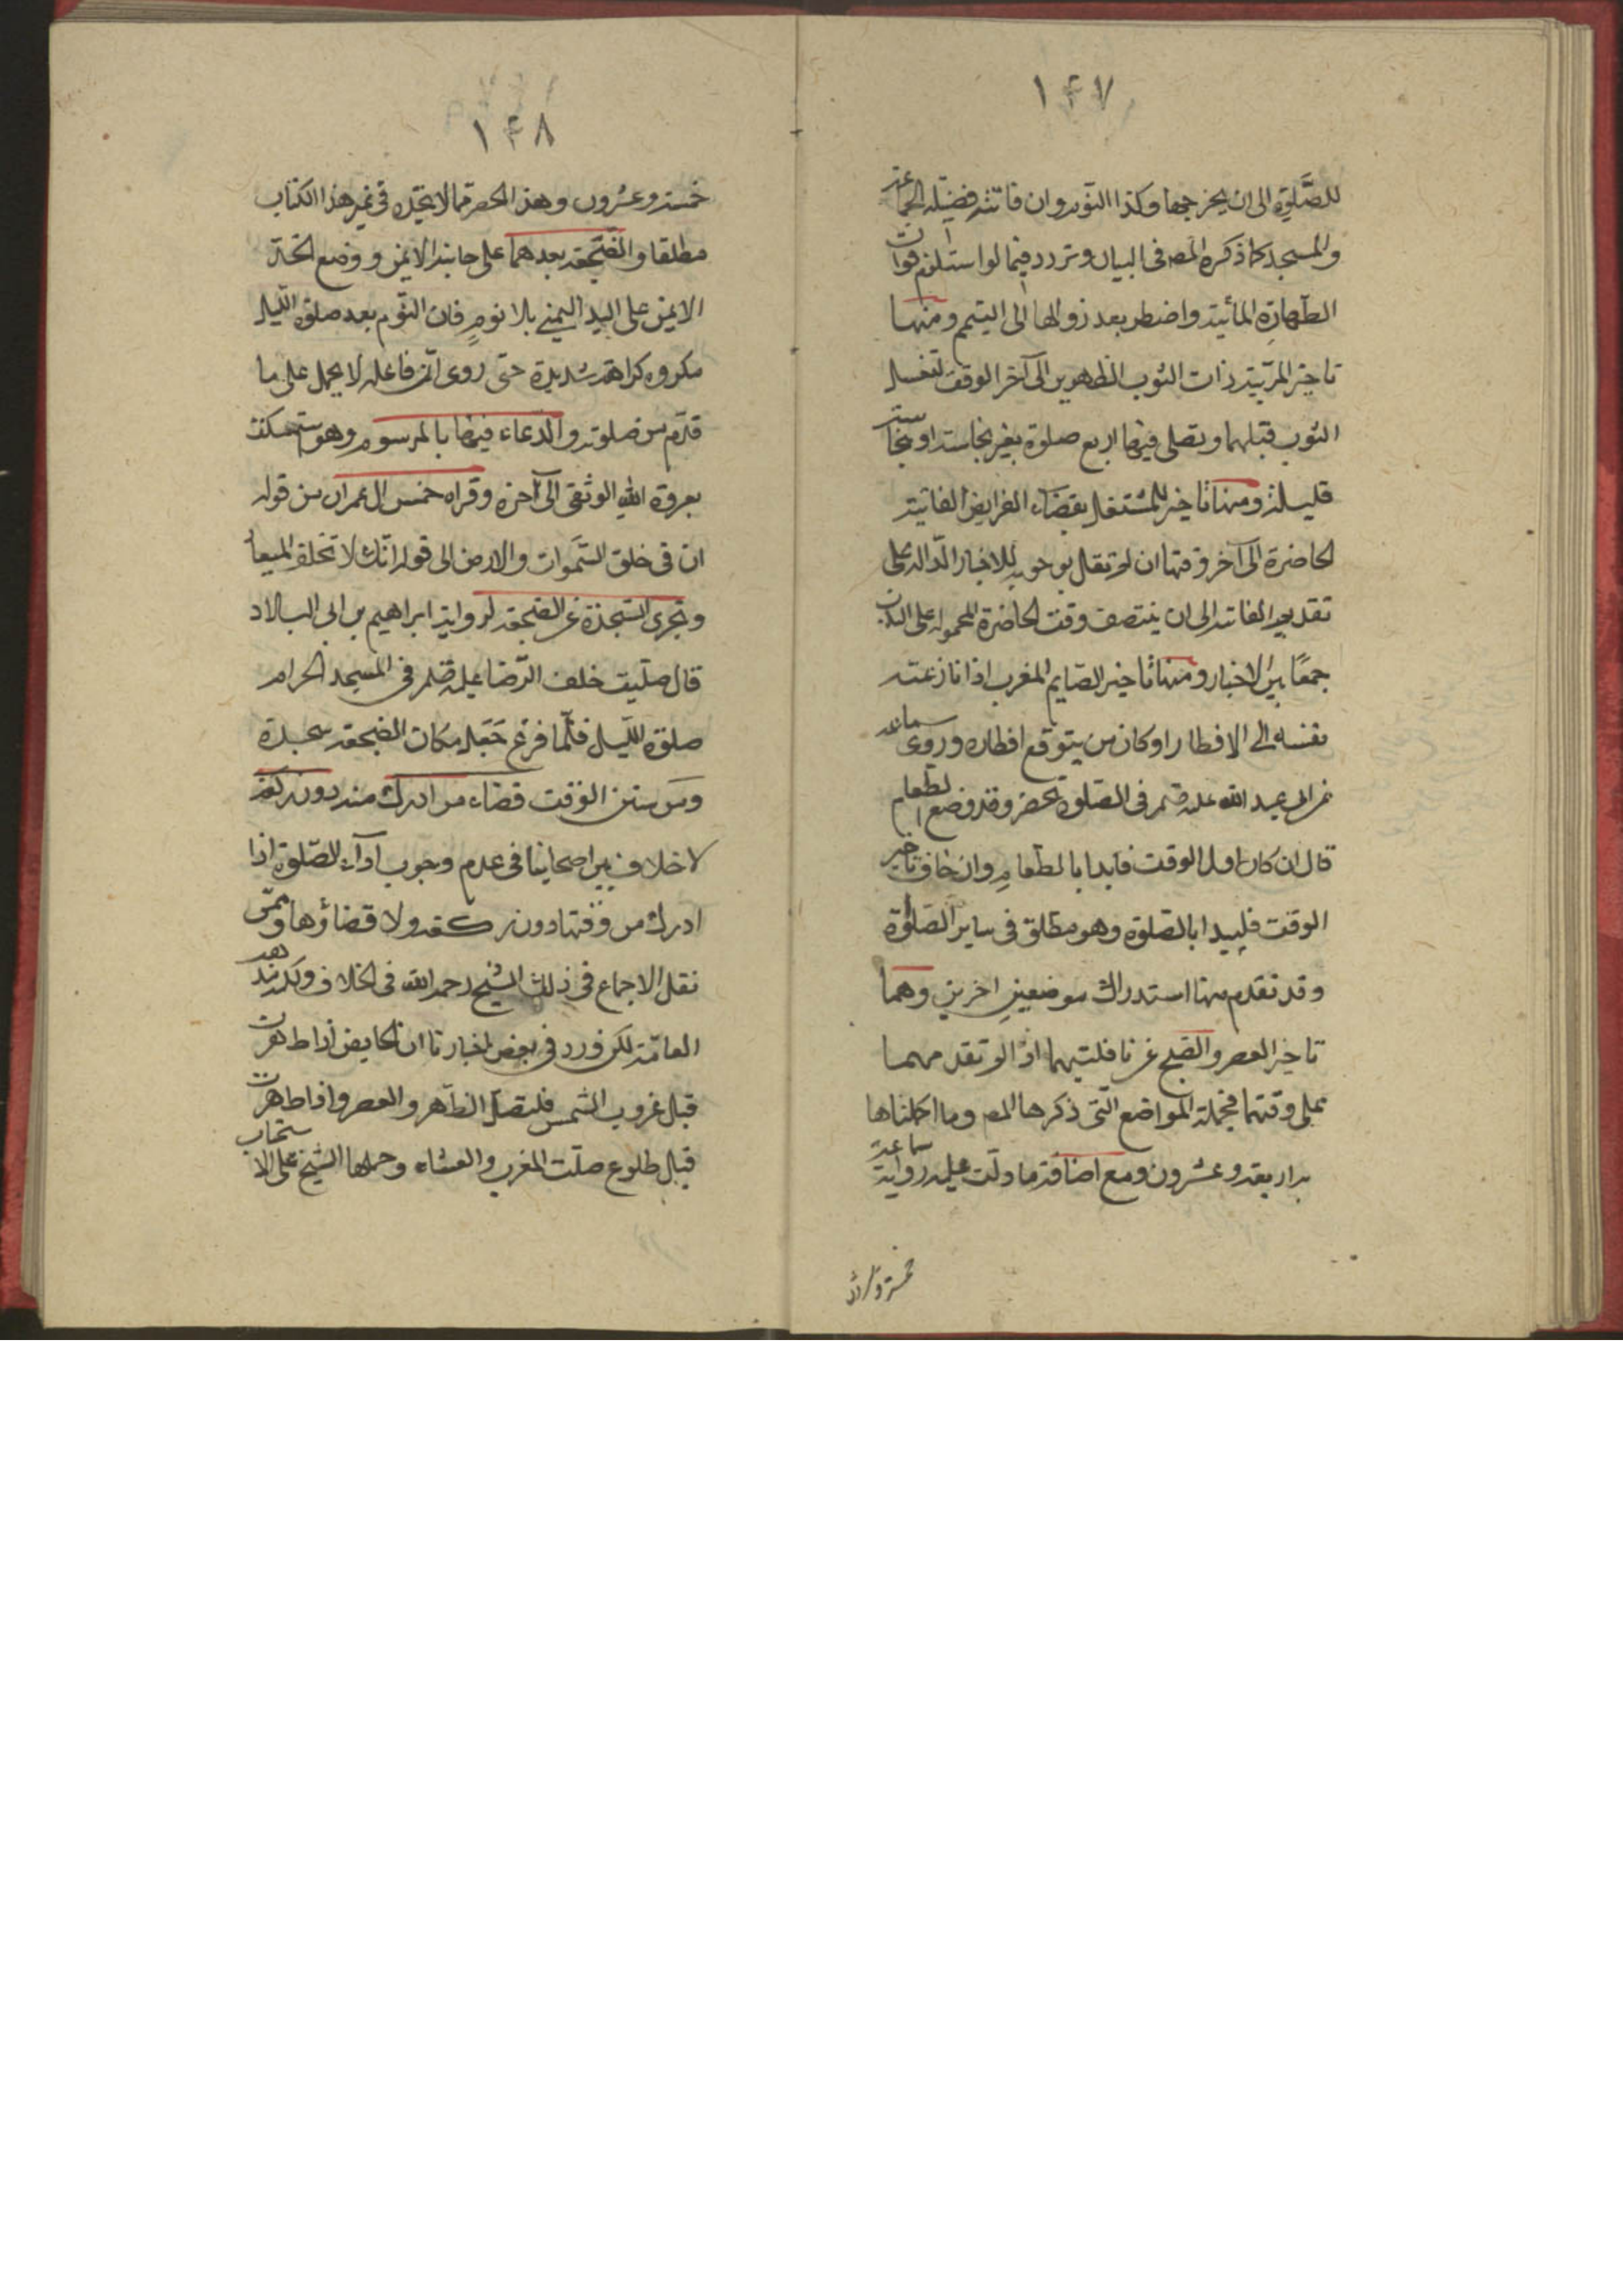 ١٤٧
للصّلوة الى ان يخرج جمعا وكذا النوم وان فاتته فضيلة الجماعة
والمسجد كما ذكره المص فى البيان وتردد فيما لو استلزم فوات
الطهارة المائية واضطر بعد زوالها الى التيمم ومنها
تاخير المربّية ذات الثوب الظهرين الى آخر الوقت لتغسل
الثوب قبلهما وتصلى فيها اربع صلوة بغير نجاسة او نجاسة
قليلة ومنها تاخير المشتغل بقضاء الفرايض الفائتة
الحاضرة الى آخر وقتها ان لم نقل بوجوبه للاخبار الدّالة على
تقديم الفائتة الى ان ينتصف وقت الحاضرة المحمولة على الندب
جمعًا بين الاخبار ومنها تاخير الصّايم المغرب اذا نازعته
نفسه الى الافطار او كان من يتوقع افطاره وروى سماعة
عن ابى عبد الله عليه فى الصّلوة تحضر وقد وضع الطعام
قال ان كان اول الوقت فابدا بالطعام وان خاف تاخير
الوقت فليبدا بالصّلوة وهو مطلق فى ساير الصّلوة
وقد تقدم منها استدراك موضعين اخرين وهما
تاخير العصر والصّبح عن نافلتيهما اذا لم تقدمهما
على وقتهما فجملة المواضع الّتى ذكرها المص وما اكملناها
به اربعة وعشرون ومع اضافة ما دلّت عليه رواية سماعة
خمسة وعشرون
١٤٨
خمسة وعشرون وهذا الحصر ممّا لا تجده فى غير هذا الكتاب
مطلقا والضّجعة بعدهما على جانبه الايمن ووضع الخدّ
الايمن على اليد اليمنى بلا نوم فان النّوم بعد صلوة الليل
مكروه كراهة شديدة حتى روى انّ فاعله لا يحمل على ما
قدّم من صلوته والدّعاء فيها بالمرسوم وهو استمسكت
بعروة الله الوثقى الى آخره وقراءة خمس ال عمران من قوله
ان فى خلق السّموات والارض الى قوله انّك لا تخلف الميعاد
وتجزى السّجدة عن الضّجعة لرواية ابراهيم بن ابى البلاد
قال صلّيت خلف الرّضا عليه فى المسجد الحرام
صلوة الليل فلمّا فرغ جعل مكان الضّجعة سجدة
ومن سنن الوقت قضاء من ادرك منه دون ركعة
لا خلاف بين اصحابنا فى عدم وجوب اداء الصّلوة اذا
ادرك من وقتها دون ركعة ولا قضاؤها وممّن
نقل الاجماع فى ذلك الشيخ رحمه الله فى الخلاف
العامّة لكن ورد فى بعض اخبارنا ان الحايض اذا طهرت
قبل غروب الشمس فلتصلّ الظّهر والعصر واذا طهرت
قبل طلوع صلّت المغرب والعشاء وحملها الشيخ على الاستحباب